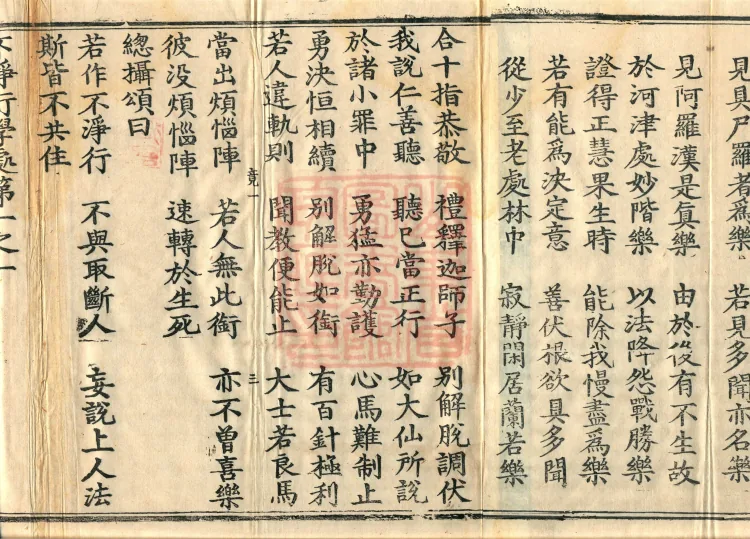 見具尸羅者為樂　若見多聞亦名樂
見阿羅漢是真樂　由於後有不生故
於河津處妙階樂　以法降怨戰勝樂
證得正慧果生時　能除我慢盡為樂
若有能為決定意　善伏根欲具多聞
從少至老處林中　寂靜閑居蘭若樂
合十指恭敬　禮釋迦師子　別解脫調伏
我說仁善聽　聽已當正行　如大仙所說
於諸小罪中　勇猛亦勤護　心馬難制止
勇決恒相續　別解脫如銜　有百針極利
若人違軌則　聞教便能止　大士若良馬
竟一　三
當出煩惱陣　若人無此銜　亦不曾喜樂
彼沒煩惱陣　速轉於生死
總攝頌曰
若作不淨行　不與取斷人　妄說上人法
斯皆不共住
不淨行學處第一之一